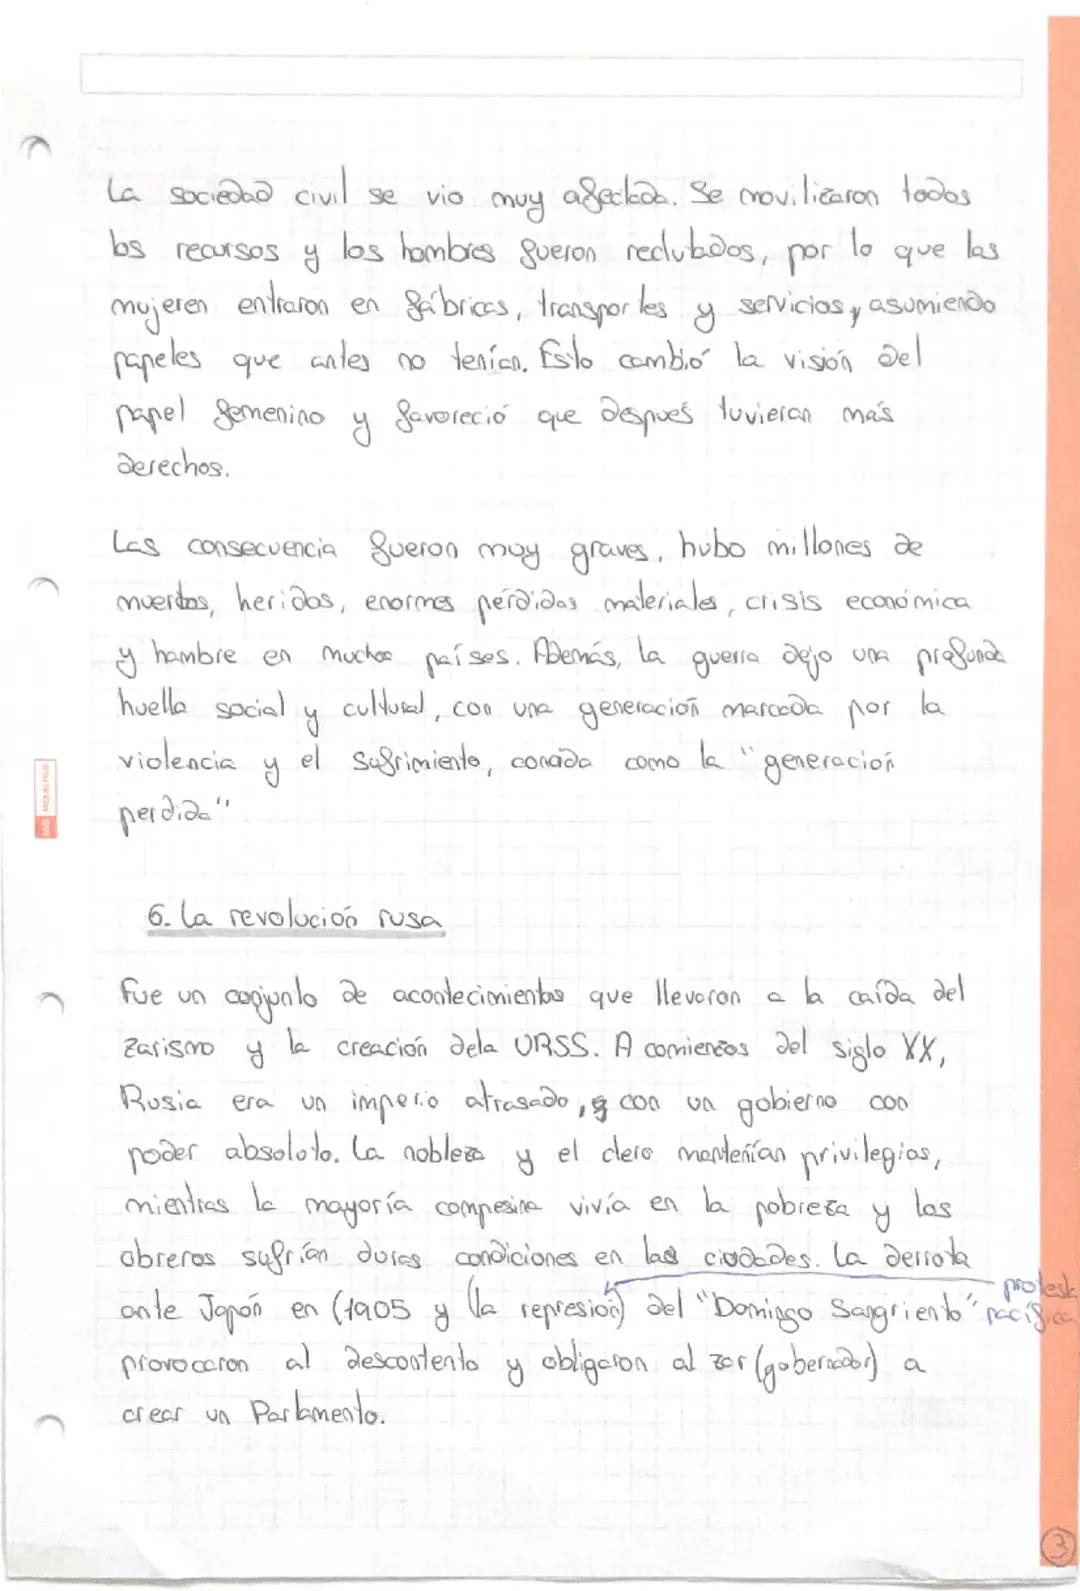 La sociedad civil se vio muy afectada. Se movilizaron todos
los recursos y los hombres fueron reclutados, por lo que las
mujeren entraron en fábricas, transportes y servicios, asumiendo
papeles que antes no tenían. Esto cambió la visión del
papel femenino y favoreció que después tuvieran más
derechos.
Las consecuencia fueron muy graves, hubo millones de
muertos, heridos, enormes pérdidas materiales, crisis económica
y hambre en muchos países. Además, la guerra dejo una profunda
huella social y cultural, con una generación marcada por la
violencia y el sufrimiento, conocida como la "generación
perdida"
6. La revolución rusa
Fue un conjunto de acontecimientos que llevaron a la caída del
zarismo y la creación dela URSS. A comienzos del siglo XX,
Rusia era un imperio atrasado, con un gobierno con
poder absoluto. La nobleza y el clero mantenían privilegios,
mientras la mayoría campesina vivía en la pobreza y los
obreros sufrían duras condiciones en las ciudades. La derrota
ante Japón en (1905 y (la represión) del "Domingo Sangriento" protesta pacífica
provocaron al descontento y obligaron al zar (gobernador) a
crear un Parlamento.
MIQUELRIUS
3